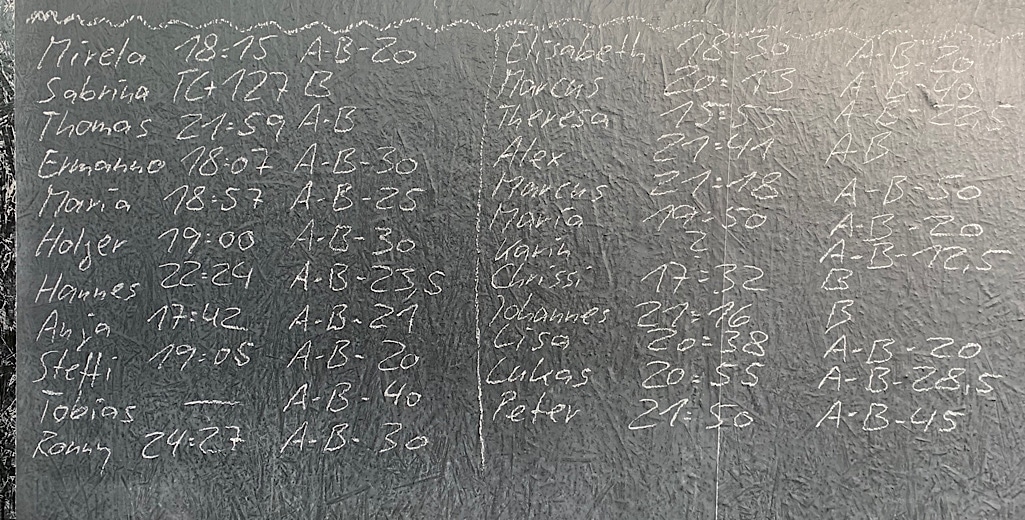 Mirela 18:15 A-B-20
Sabrina TG+127 B
Thomas 21:59 A-B
Ermanno 18:07 A-B-30
Maria 18:57 A-B-25
Holger 19:00 A-B-30
Hannes 22:24 A-B-23,5
Anja 17:42 A-B-21
Steffi 19:05 A-B-20
Tobias — A-B-40
Ronny 24:27 A-B-30
Elisabeth 18:30 A-B-20
Marcus 20:13 A-B-40
Theresa 15:55 A-B-22,5
Alex 21:41 AB
Marcus 21:18 A-B-50
Maria 19:50 A-B-20
Karin ? A-B-12,5
Chrissi 17:32 B
Johannes 21:16 B
Lisa 20:38 A-B-20
Lukas 20:55 A-B-28,5
Peter 21:50 A-B-45